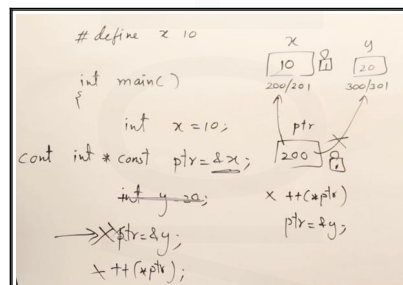 # define x 10
int main()
{
int x=10;
cont int * const ptr=&x;
int y 20;
→ x ptr=&y;
x ++(*ptr);
x y
10 20
200/201 300/301
ptr
200
x ++(*ptr)
ptr=&y;